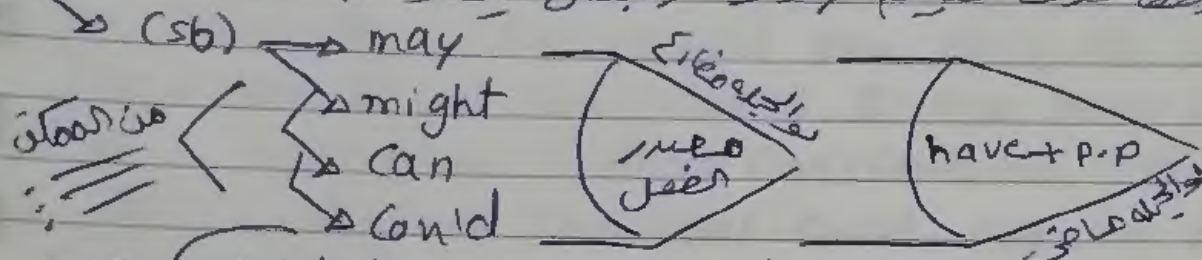 (sb) may
might
can
could
من الممكن
لو الجملة مضارع
مصدر
الفعل
have + p.p
لو الجملة ماضي